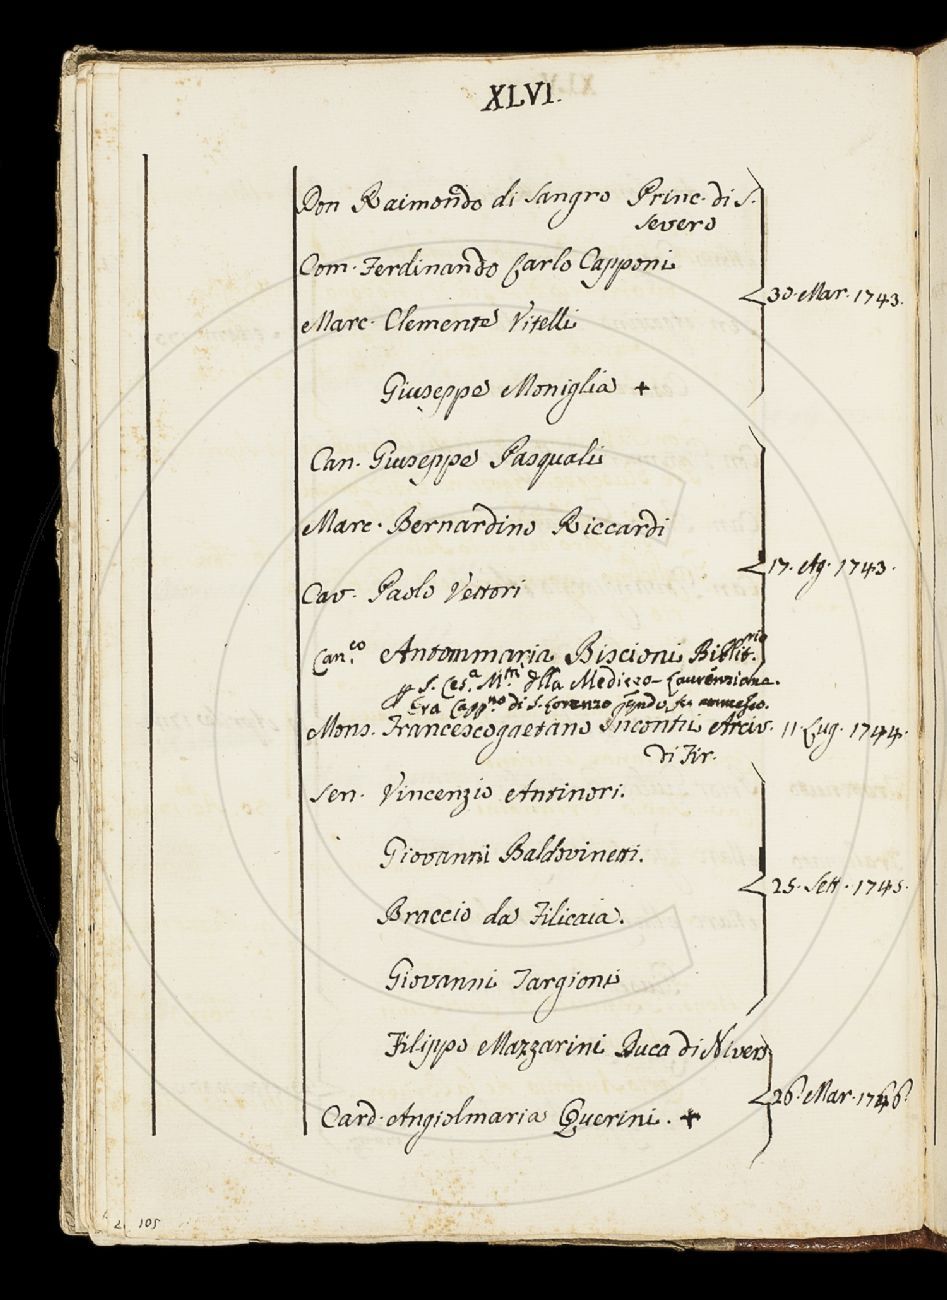 XLVI.
Don Raimondo di Sangro Princ. di S.
Severo
Com. Ferdinando Carlo Capponi
30. Mar. 1743.
Marc. Clemente Vitelli
Giuseppe Moniglia +
Can. Giuseppe Pasquali
Marc. Bernardino Riccardi
17. Ag. 1743.
Cav. Paolo Vettori
Can.co Antommaria Biscioni Bibliot.rio
p S. Ces.a M.tà dlla Mediceo-Laurenziana.
Era Capp.no di S. Lorenzo qndo fu ammesso.
Mons. Francescogaetano Incontri Arciv. 11. Lug. 1744.
di Fir.
Sen. Vincenzio Antinori.
Giovanni Baldovinetti.
25. Sett. 1745.
Braccio da Filicaia.
Giovanni Targioni
Filippo Mazzarini Duca di Nivers
26. Mar. 1746.
Card. Angiolmaria Querini. +
2 105